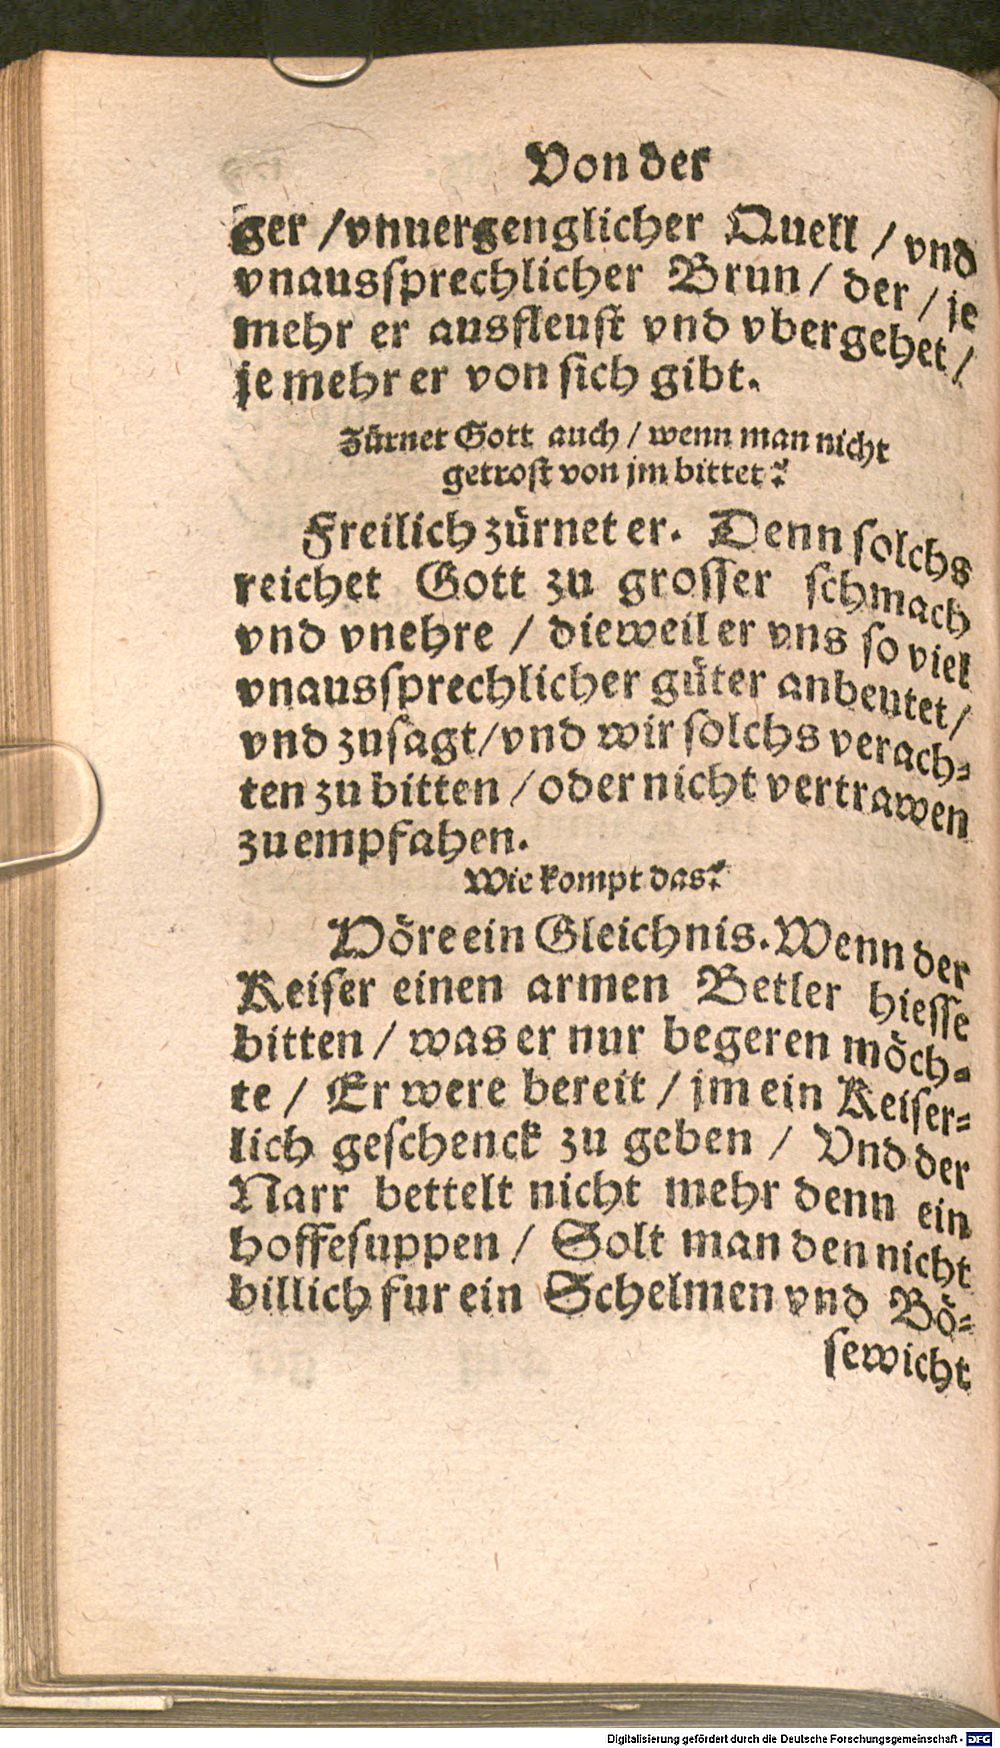 Von der
ger /vnuergenglicher Quell / vnd
vnaussprechlicher Brun / der / je
mehr er ausfleust vnd vbergehet /
je mehr er von sich gibt.
Zürnet Gott auch / wenn man nicht
getrost von jm bittet?
Freilich zürnet er. Denn solchs
reichet Gott zu grosser schmach
vnd vnehre / dieweil er vns so viel
vnaussprechlicher güter anbeutet /
vnd zusagt/vnd wir solchs verach-
ten zu bitten / oder nicht vertrawen
zu empfahen.
Wie kompt das?
Höre ein Gleichnis. Wenn der
Keiser einen armen Betler hiesse
bitten / was er nur begeren möch-
te / Er were bereit / jm ein Keiser-
lich geschenck zu geben / Vnd der
Narr bettelt nicht mehr denn ein
hoffesuppen / Solt man den nicht
billich fur ein Schelmen vnd Bö-
sewicht
Digitalisierung gefördert durch die Deutsche Forschungsgemeinschaft - DFG